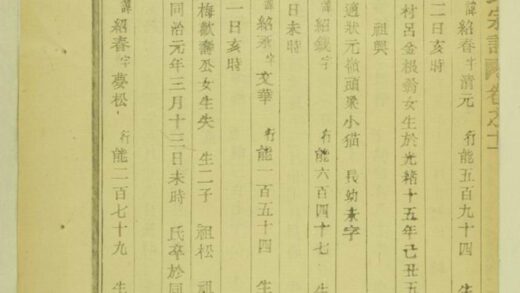 宗譜 卷之十
諱紹春字清元 行能五百九十四 生
二日亥時
村呂金根翁女生於光緒十五年己丑五
祖興
適狀元徹頭梁小猫 長幼未字
諱紹鉞字 行能六百四十七 生
日未時
諱紹 字文華 行能一百五十四 生
一日亥時
梅歡壽公女生失 生二子 祖松 祖
同治元年三月十三日未時 氏卒於同
諱紹春字夢松 行能二百七十九 生